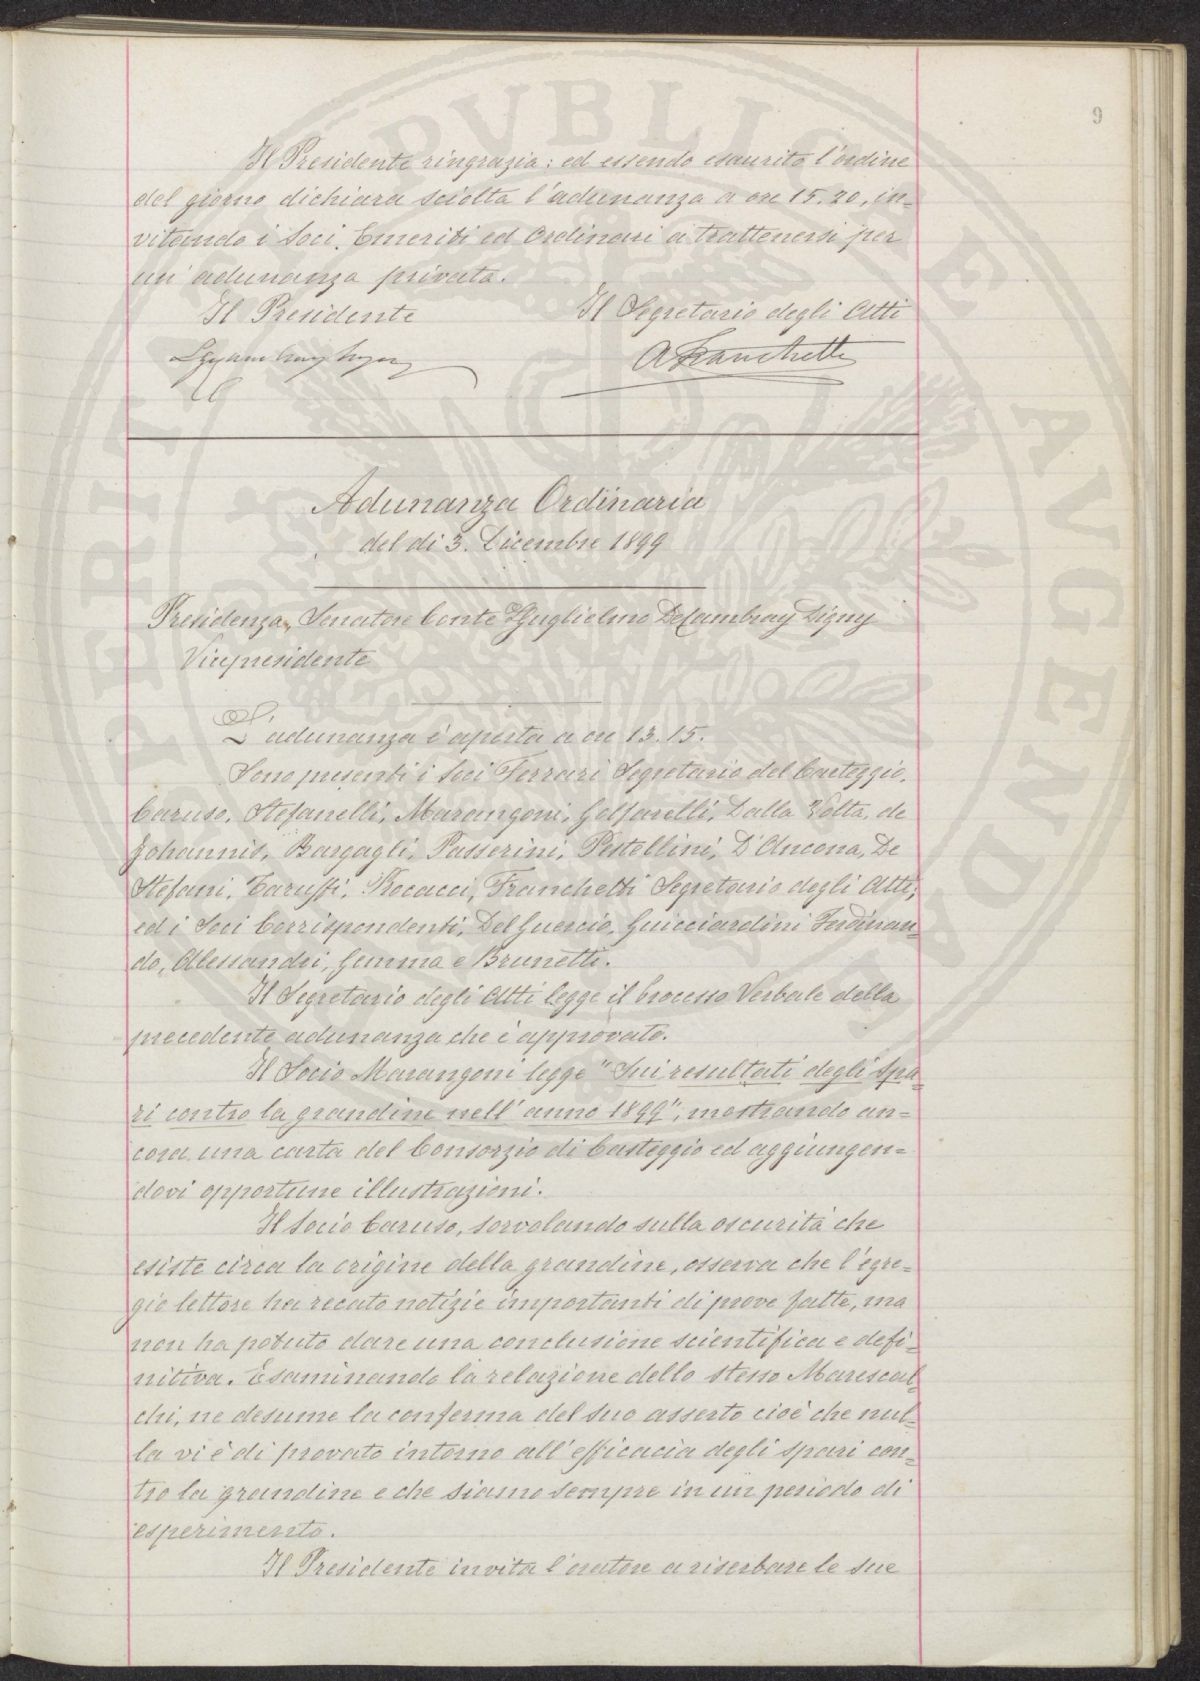 9
Il Presidente ringrazia: ed essendo esaurito l'ordine
del giorno dichiara sciolta l'adunanza a ore 15.20, in=
vitando i Soci Emeriti ed Ordinari a trattenersi per
un'adunanza privata.
Il Presidente Il Segretario degli Atti
AFranchetti
Adunanza Ordinaria
del dì 3. Dicembre 1899
Presidenza, Senatore Conte Guglielmo DeCambray Digny
Vicepresidente
L'adunanza è aperta a ore 13.15.
Sono presenti i Soci Ferrari Segretario del Carteggio,
Caruso, Stefanelli, Marangoni, Golfarelli, Dalla Volta, de
Johannis, Bargagli, Passerini, Pestellini, D'Ancona, De
Stefani, Taruffi, Procacci, Franchetti Segretario degli Atti;
ed i Soci Corrispondenti, Del Guercio, Guicciardini Ferdinan=
do, Alessandri, Gemma e Brunetti.
Il Segretario degli Atti legge il Processo Verbale della
precedente adunanza che è approvato.
Il Socio Marangoni legge "Sui resultati degli spa=
ri contro la grandine nell'anno 1899", mostrando an=
cora una carta del Consorzio di Casteggio ed aggiungen=
dovi opportune illustrazioni.
Il Socio Caruso, sorvolando sulla oscurità che
esiste circa la origine della grandine, osserva che l'egre=
gio lettore ha recato notizie importanti di prove fatte, ma
non ha potuto dare una conclusione scientifica e defi=
nitiva. Esaminando la relazione dello stesso Marescal=
chi, ne desume la conferma del suo asserto cioè che nul=
la vi è di provato intorno all'efficacia degli spari con=
tro la grandine e che siamo sempre in un periodo di
esperimento.
Il Presidente invita l'oratore a riserbare le sue
PVBLICAE AVGENDAE
PERITATI